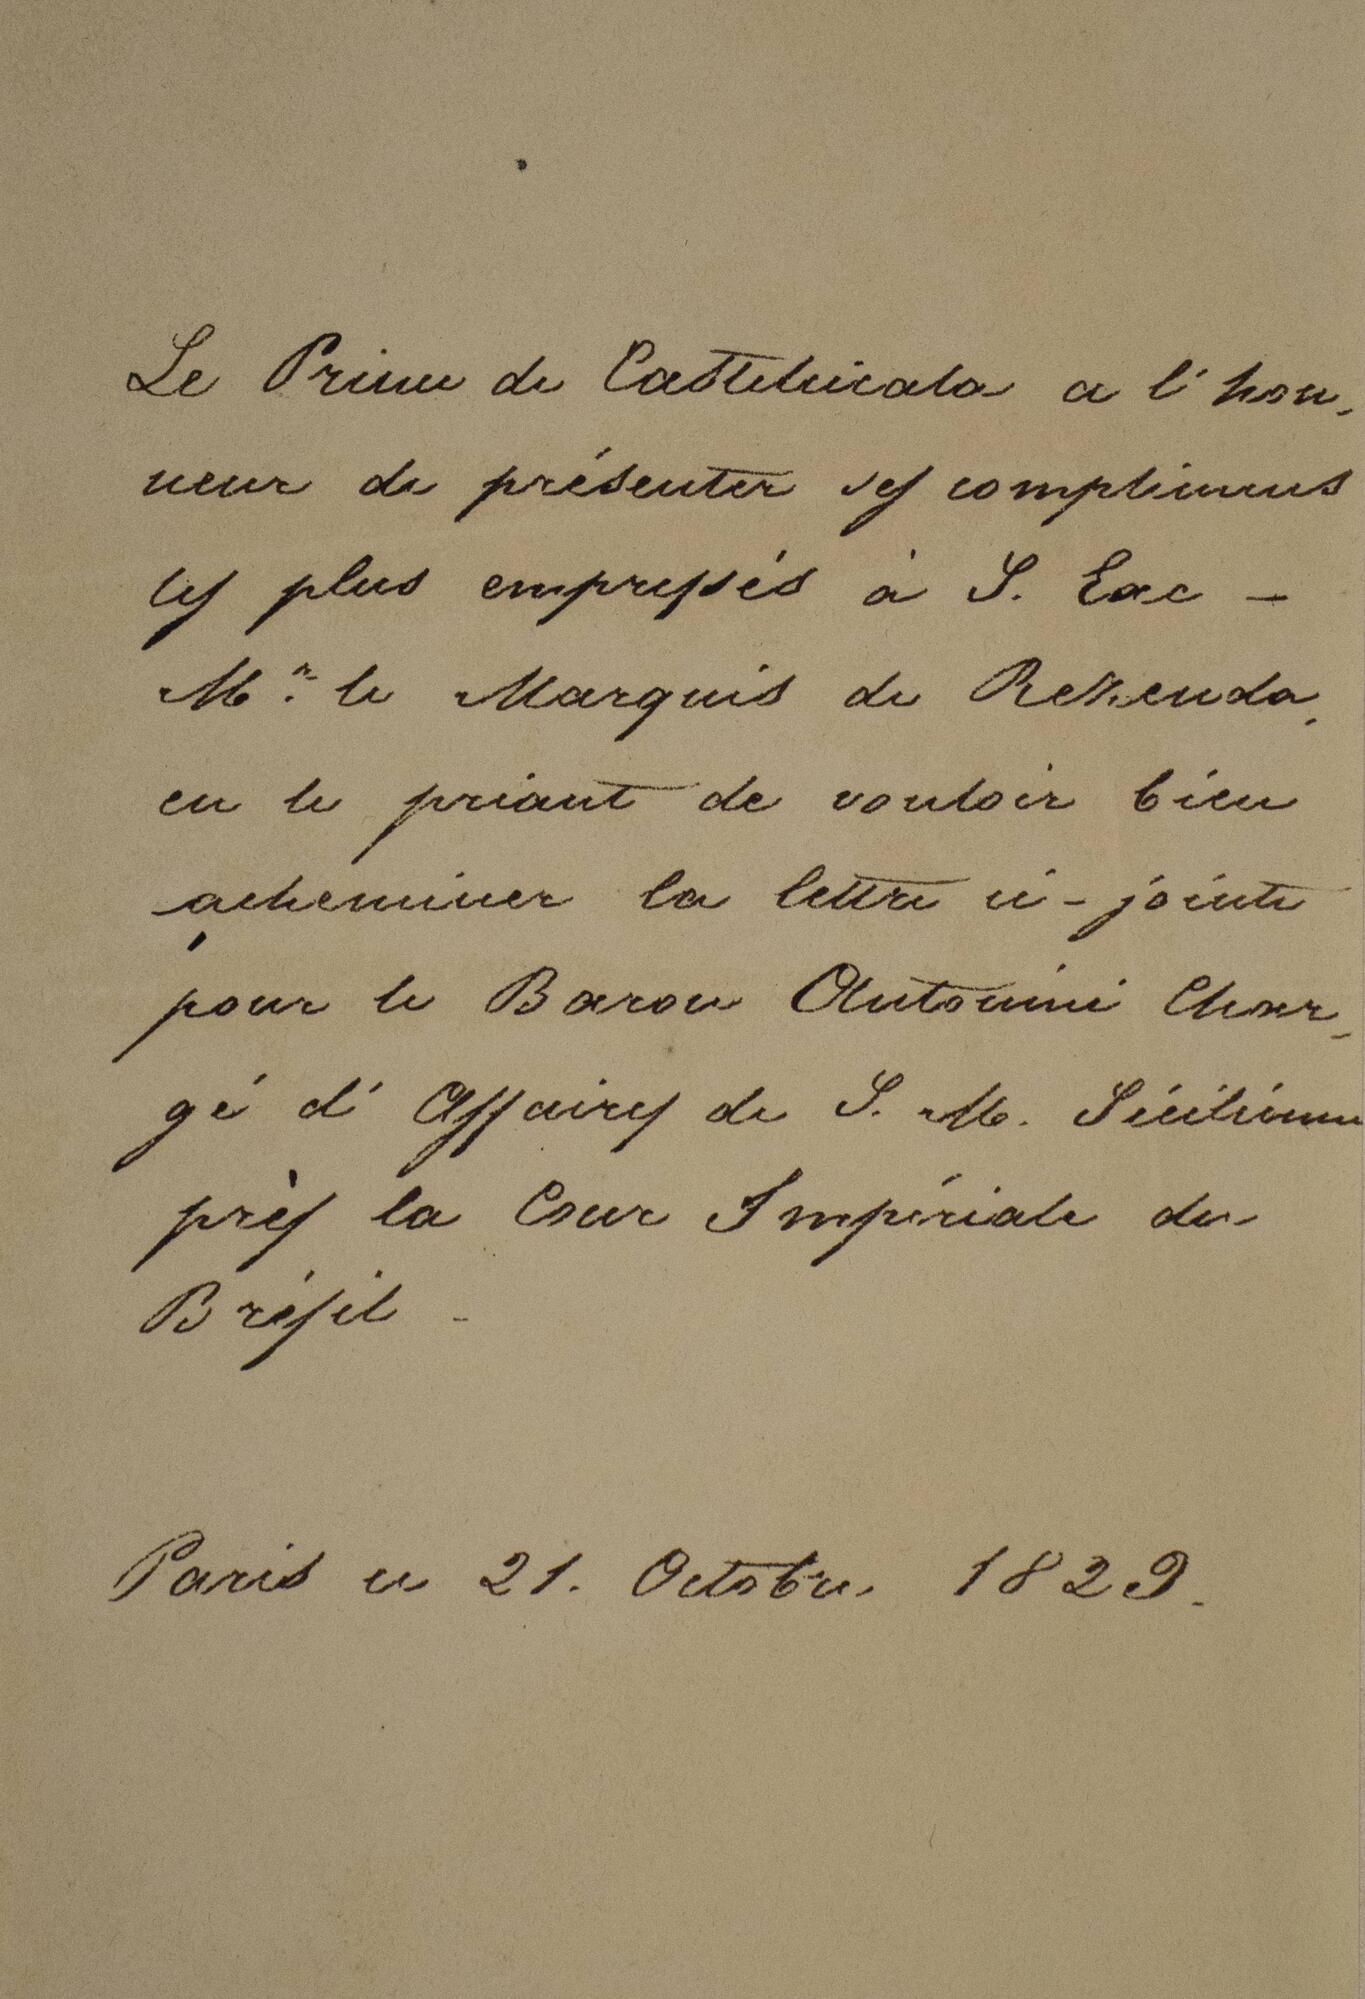 Le Prince de Castelcicala a l'hon-
neur de présenter ses complimens
les plus empressés à S. Exc -
Mr. le Marquis de Rezenda,
en le priant de vouloir bien
acheminer la lettre ci-jointe
pour le Baron Antonini Char-
gé d'Affaires de S. M. Sicilienne
près la Cour Impériale du
Brésil -
Paris ce 21. Octobre 1829.